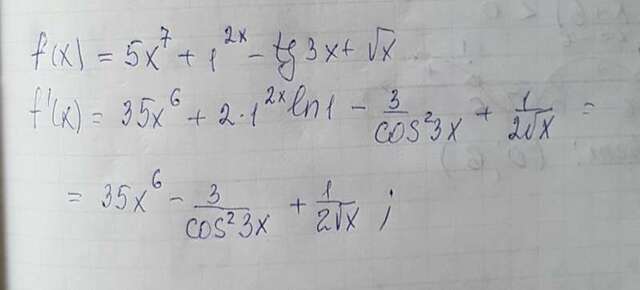 f(x) = 5x⁷ + 1²ˣ - tg 3x + √x
f'(x) = 35x⁶ + 2·1²ˣ ln 1 - 3/cos²3x + 1/2√x =
= 35x⁶ - 3/cos²3x + 1/2√x ;